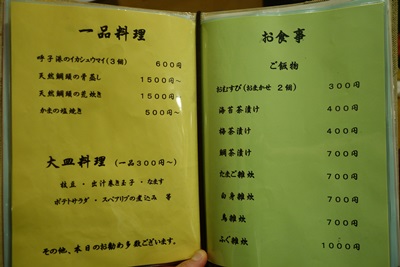 一品料理
呼子港のイカシュウマイ(3個) 600円
天然鯛頭の骨蒸し 1500円~
天然鯛頭の荒炊き 1500円~
かまの塩焼き 500円~
大皿料理(一品300円~)
枝豆・出汁巻き玉子・なます
ポテトサラダ・スペアリブの煮込み 等
その他、本日のお勧め多数ございます。
お食事
ご飯物
おむすび(おまかせ 2個) 300円
海苔茶漬け 400円
梅茶漬け 400円
鯛茶漬け 700円
たまご雑炊 700円
白身雑炊 700円
鳥雑炊 700円
ふぐ雑炊 1000円